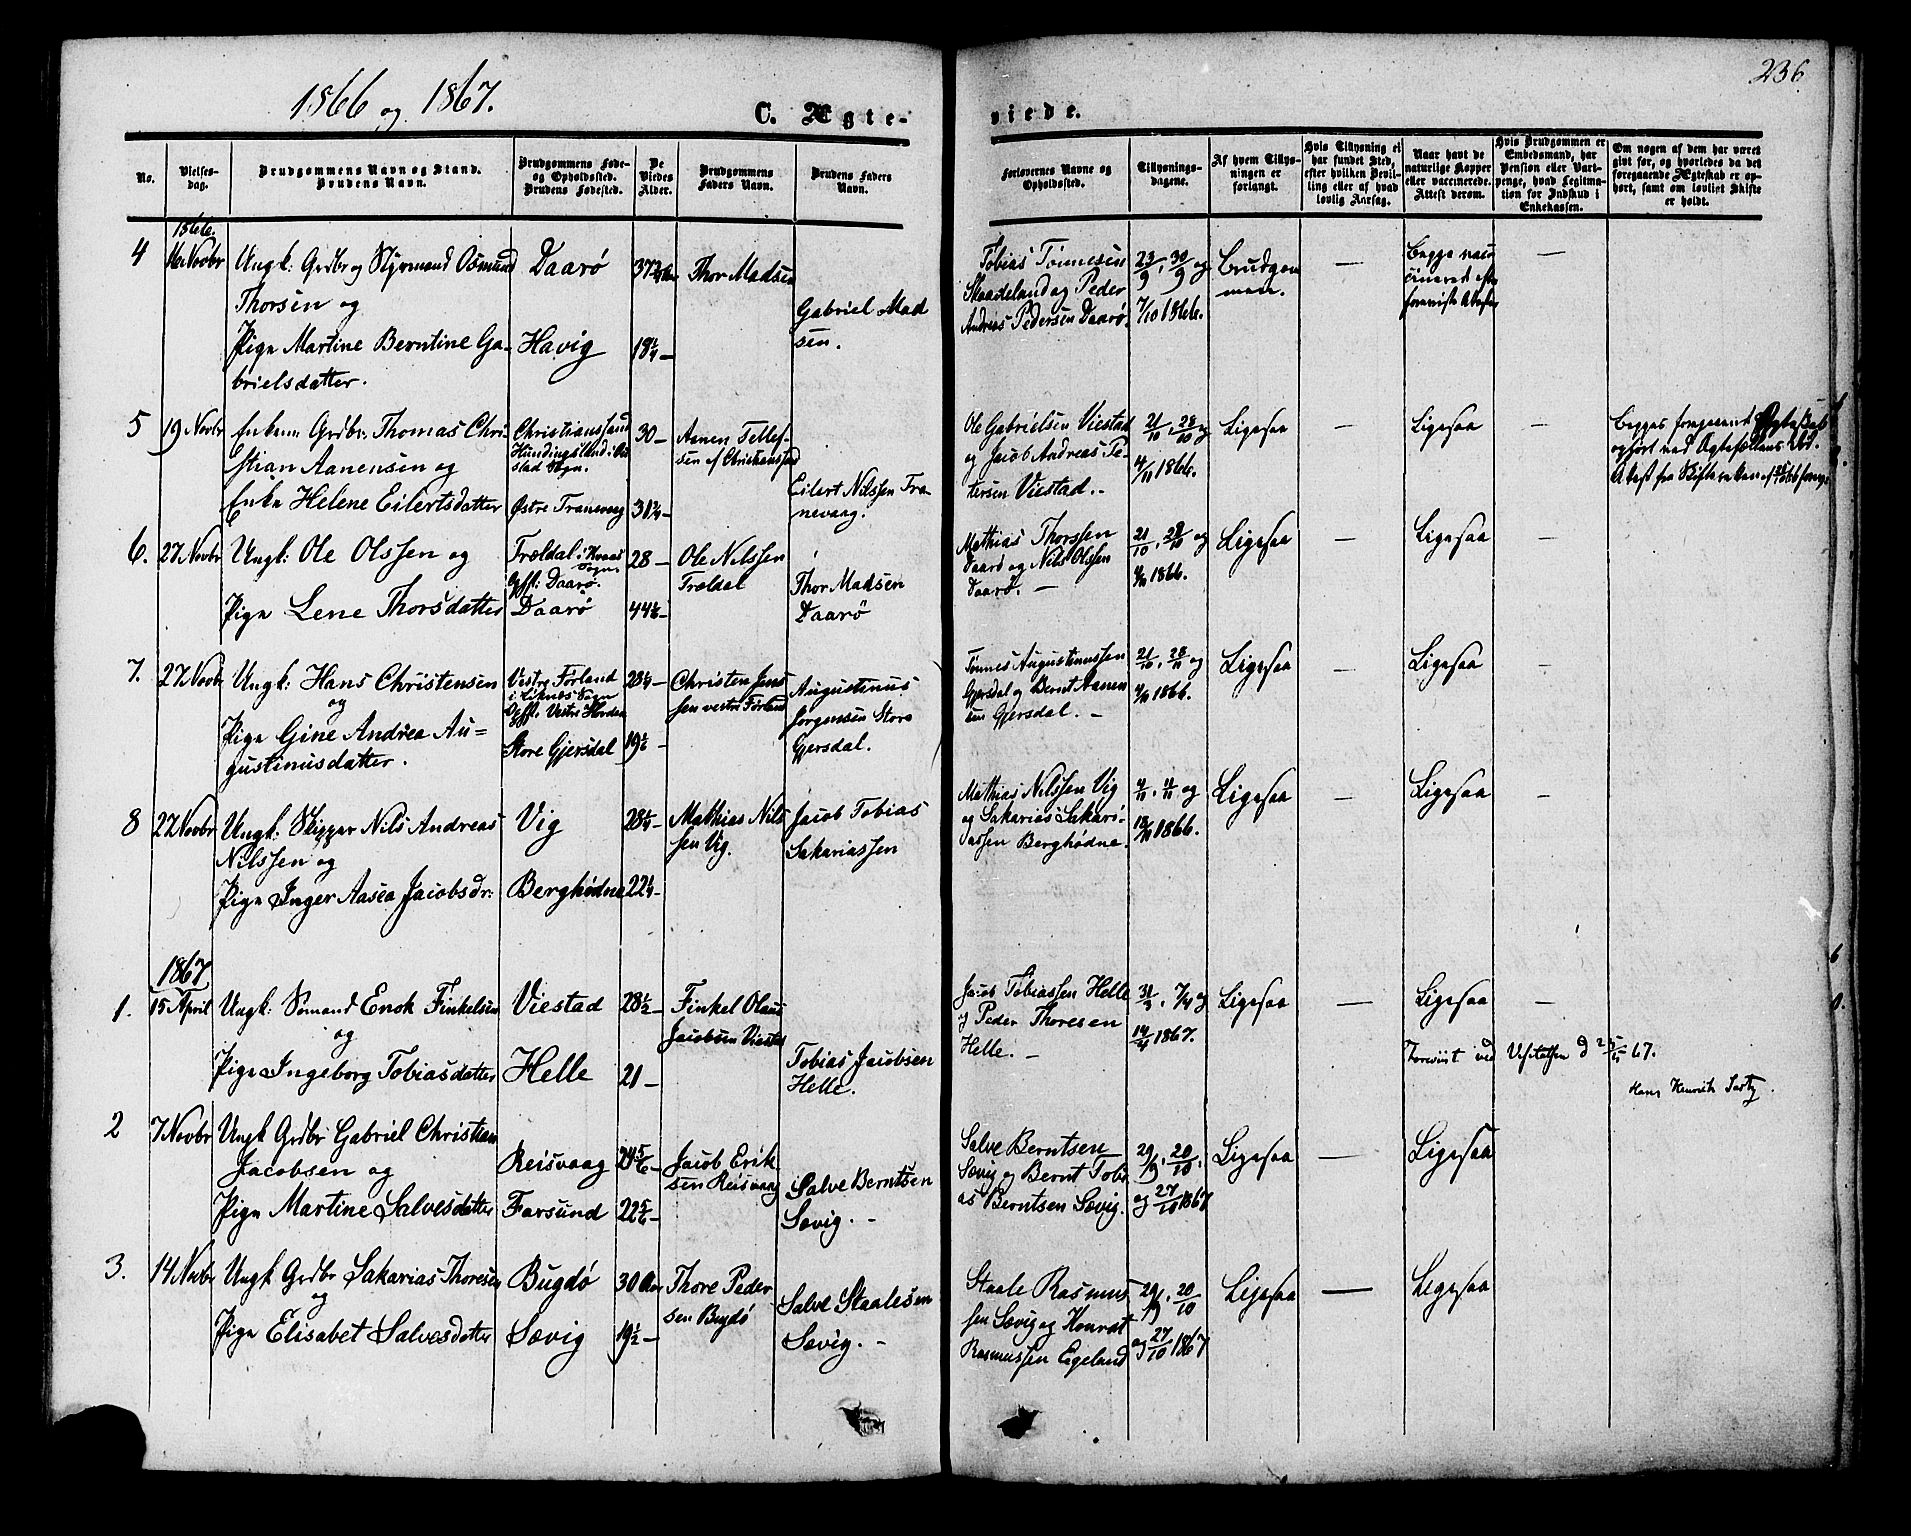 1866 og 1867.
C. Ægte-
viede.
236
No.
Vielses-
dag.
Brudgommens Navn og Stand.
Brudens Navn.
Brudgommens Føde-
og Opholdssted.
Brudens Fødested.
De
Viedes
Alder.
Brudgommens
Faders Navn.
Brudens Faders
Navn.
Forlovernes Navne og
Opholdssted.
Tillysnings-
dagene.
Af hvem Tillys-
ningen er
forlangt.
Hvis Tillysning ei
har fundet Sted,
efter hvilken Bevil-
ling eller af hvad
lovlig Aarsag.
Naar havt de
naturlige Kopper
eller vaccinerede.
Attest derom.
Hvis Brudgommen er
Embedsmand, har
Pension eller Vart-
penge, hvad Legitima-
tion for Indskud i
Enkekassen.
Om nogen af dem har været
gift før, og hvorledes da det
foregaaende Ægteskab er op-
hørt, samt om lovligt Skifte
er holdt.
1866.
4 Novbr Ungk: Grdbr og Styrmand Osmund Daarø 37 Thor Madsen
Thorsen og
Pige Martine Berntine Ga- Havig 18¼ –
brielsdatter.
Gabriel Mad
sen.
Tobias Tønnesen
Skaadeland og Peder
Andreas Pedersen Daarø.
23/9, 30/9 og
7/10 1866.
Brudgom
men.
—
Begge vacc
cinerede
—
5 19 Novbr Enkem Grdbr: Thomas Chri-
stian Aanensen og
Enke Helene Eilertsdatter
Christianssand
Stad Sogn.
Østre Tranevaag
30 –
31¼ –
Aanen Tellef-
sen af Christianssand
Eilert Nilssen Tra-
nevaag.
Ole Gabrielsen Viestad
og Jacob Andreas Pe-
tersen Viestad. –
21/10, 28/10 og
4/11 1866.
Ligesaa
—
Ligesaa
—
Begges foregaaende Ægteskab
ophørt ved Ægtefællens Død.
6. 27 Novbr Ungk: Ole Olssen og
Pige Lene Thorsdatter
Træidal i Kvaas
Sogn.
Opft: Daarø.
Daarø
28 –
44½ –
Ole Nilssen
Træidal
Thor Madsen
Daarø
Mathias Thorssen
Daarø og Nils Olssen
Daarø. –
21/10, 28/10 og
4/11 1866.
Ligesaa
—
Ligesaa
—
7. 27 Novbr Ungk: Hans Christensen
og
Pige Gine Andrea Au-
gustinusdatter.
Vestre Førland
i Liknes Sogn
Store Gjersdal
28¼ –
19½ –
Christen Jens
sen vestre Førland
Augustinus
Jørgensen Store
Gjersdal.
Tønnes Augustinussen
Gjersdal og Bernt Aanen
sen Gjersdal. –
21/10, 28/10 og
4/11 1866.
Ligesaa
—
Ligesaa
—
8 27 Novbr Ungk: Skipper Nils Andreas
Nilssen og
Pige Inger Aasea Jacobsdr:
Vig
Berghødne
28¼ –
22¼ –
Mathias Nils
sen Vig.
Jacob Tobias
Sakariassen
Mathias Nilssen Vig
og Sakarias Sakari-
assen Berghødne.
4/11, 11/11 og
18/11 1866.
Ligesaa
—
Ligesaa
—
1867
1. 15 April Ungk: Sømand Enok Finkelsen
og
Pige Ingeborg Tobiasdatter
Viestad
Helle
28½ –
21 –
Finkel Olaus
Jacobsen Viestad
Tobias Jacobsen
Helle.
Jacob Tobiassen Helle
og Peder Thoresen
Helle. –
31/3, 7/4 og
14/4 1867.
Ligesaa
—
Ligesaa
—
Foreviist ved Visitatsen d 67.
Hans Henrik
2 7 Novbr Ungk Grdbr Gabriel Christian
Jacobsen og
Pige Martine Salvesdatter
Reisvaag
Farsund
24⅚ –
22⅚ –
Jacob Erik
sen Reisvaag
Salve Berntsen
Sævig. –
Salve Berntsen
Sævig og Bernt Tobi
as Berntsen Sævig.
29/9, 20/10.
og 27/10 1867
Ligesaa
—
Ligesaa
3. 14 Novbr Ungk Grdbr Sakarias Thoresen
og
Pige Elisabet Salvesdatter
Bugdø
Sævig
30 Aar
19½ –
Thore Peder
sen Bugdø
Salve Staalesen
Sævig. –
Staale Rasmus
sen Sævig og Konrat
Rasmussen Egeland
29/9, 20/10
og 27/10 1867
Ligesaa
—
Ligesaa